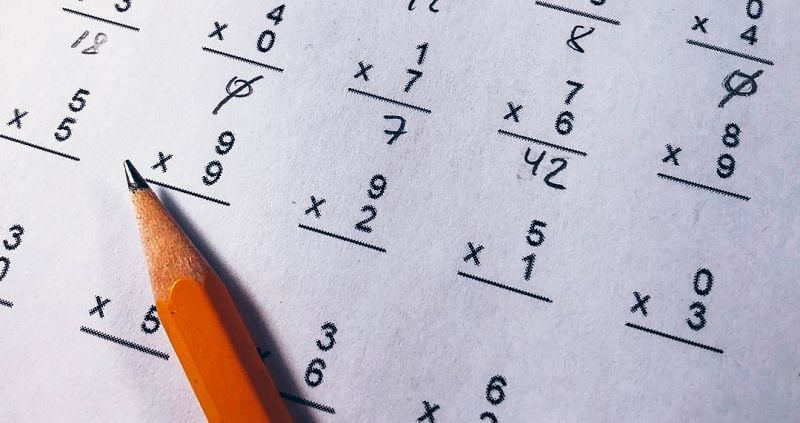 8
0
x 4
0
18
4
x 0
0
1
x 7
7
7
x 6
42
8
x 9
5
x 5
9
x 9
9
x 2
5
x 1
0
x 3
3
x 5
3
6
6
x